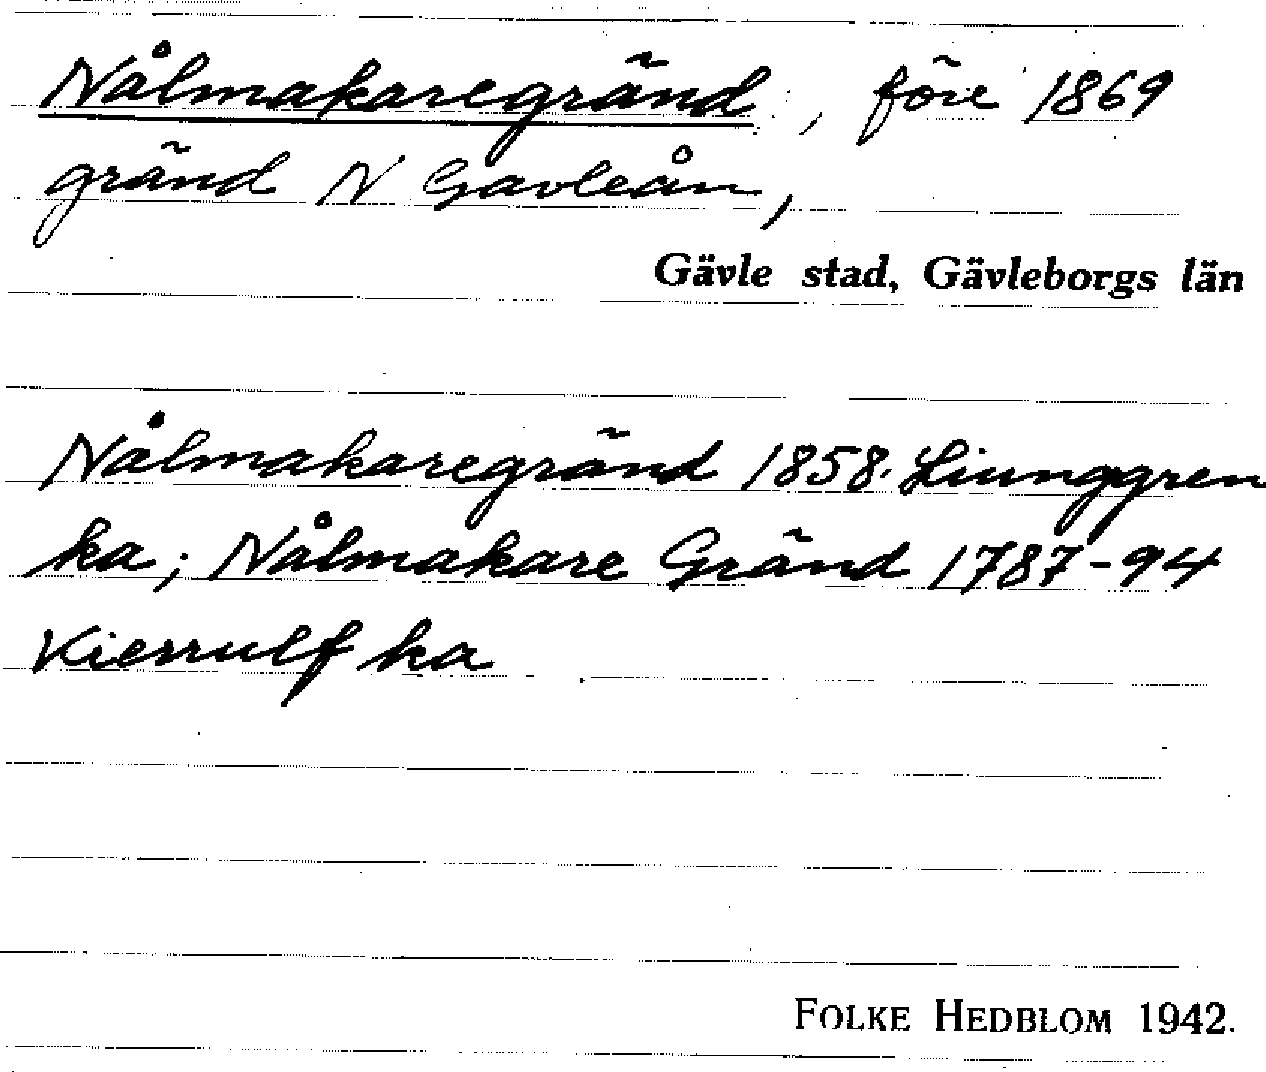 Nålmakaregränd, före 1869
gränd N Gavleån,
Gävle stad, Gävleborgs län
Nålmakaregränd 1858. Liunggren
ka; Nålmakare Gränd 1787-94
Kierrulf ka
FOLKE HEDBLOM 1942.